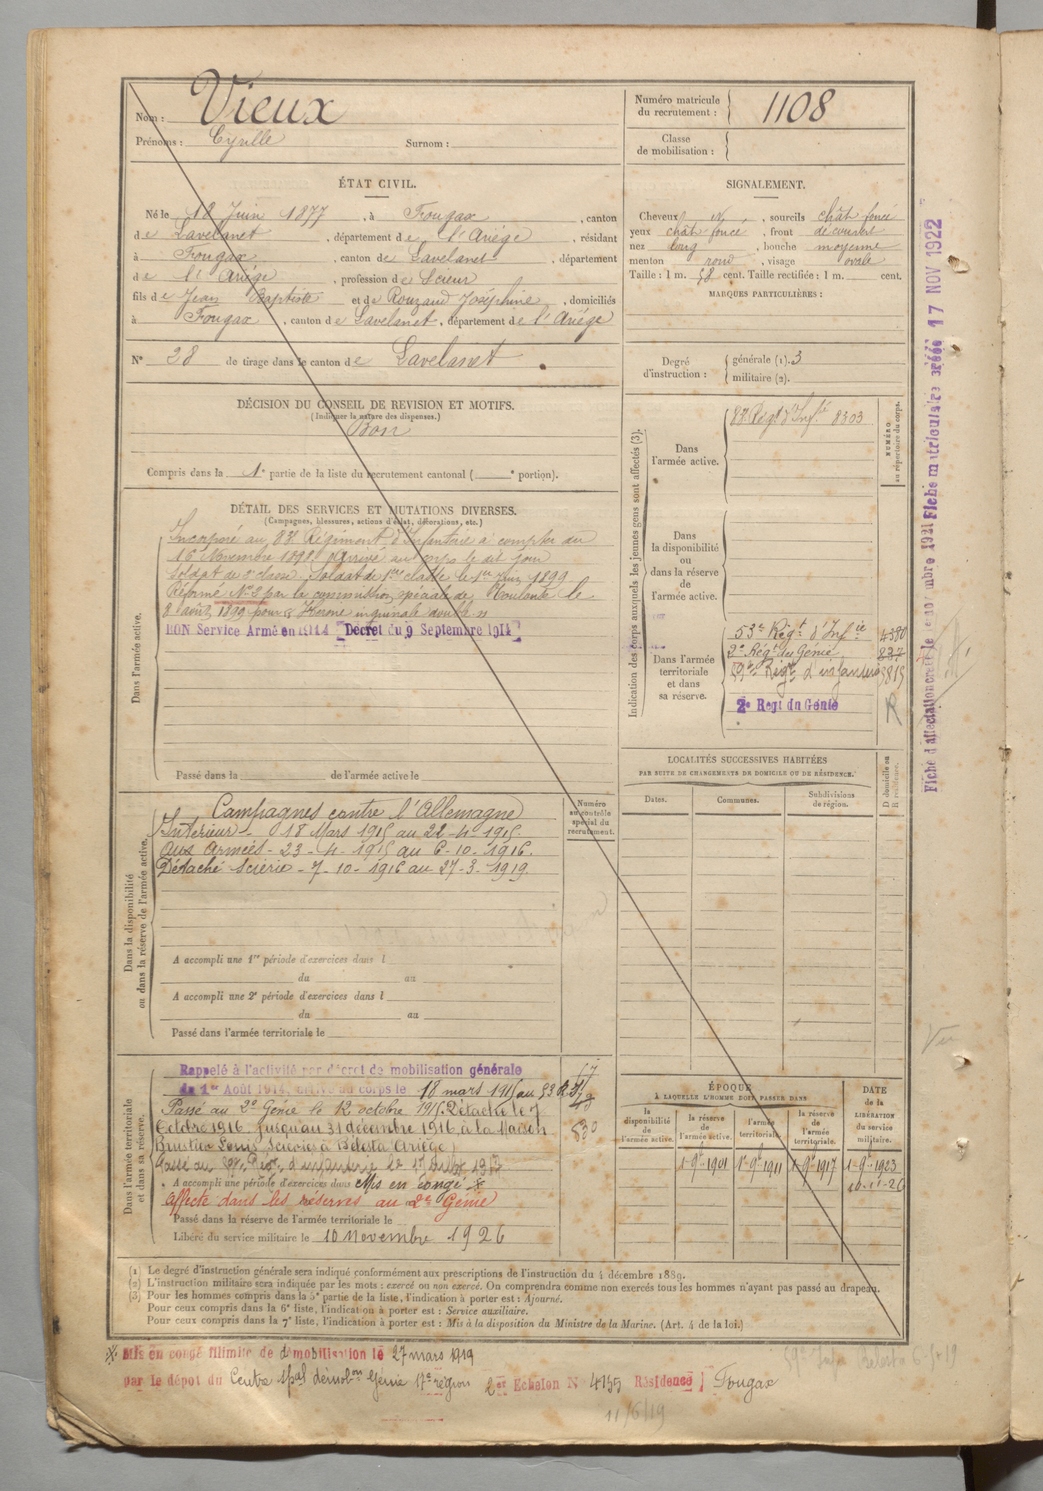 Nom : Vieux
Prénoms : Cyrille Surnom :
Numéro matricule du recrutement : 1108
Classe de mobilisation :
ÉTAT CIVIL.
Né le 18 Juin 1877, à Fougax, canton
de Lavelanet, département de l'Ariége, résidant
à Fougax, canton de Lavelanet, département
de l'Ariége, profession de Scieur
fils de Jean Baptiste et de Rouzaud Joséphine, domiciliés
à Fougax, canton de Lavelanet, département de l'Ariége
N° 28 de tirage dans le canton de Lavelanet
SIGNALEMENT.
Cheveux N, sourcils chât foncé
yeux chât foncé, front découvert
nez long, bouche moyenne
menton rond, visage ovale
Taille : 1 m. 58 cent. Taille rectifiée : 1 m. cent.
MARQUES PARTICULIÈRES :
Degré d'instruction : générale (1). 3
militaire (2).
DÉCISION DU CONSEIL DE REVISION ET MOTIFS.
(Indiquer la nature des dispenses.)
Bon
Compris dans la 1e partie de la liste du recrutement cantonal ( e portion).
DÉTAIL DES SERVICES ET MUTATIONS DIVERSES.
(Campagnes, blessures, actions d'éclat, décorations, etc.)
Dans l'armée active.
Incorporé au 83e Régiment d'Infanterie à compter du
16 Novembre 1898 Arrivé au corps le dit jour
Soldat de 2e classe. Soldat de 1ère classe le 1er Juin 1899
Réformé N° 2 par la commission spéciale de Toulouse le
8 août 1899 pour « Hernie inguinale double »
BON Service Armé en 1914 Décret du 9 Septembre 1914
Passé dans la de l'armée active le
Indication des corps auxquels les jeunes gens sont affectés (3).
NUMÉRO au répertoire du corps.
Dans l'armée active.
83e Régt d'Infie 8303
Dans la disponibilité ou dans la réserve de l'armée active.
Dans l'armée territoriale et dans sa réserve.
53e Régt d'Infie 4380
2e Régt du Génie 837
59e Régt d'infanterie
2e Regt du Génie
LOCALITÉS SUCCESSIVES HABITÉES
PAR SUITE DE CHANGEMENTS DE DOMICILE OU DE RÉSIDENCE.
D domicile ou R résidence.
Dates. Communes. Subdivisions de région.
Dans la disponibilité ou dans la réserve de l'armée active.
Numéro au contrôle spécial du recrutement.
Campagnes contre l'Allemagne
Intérieur - 18 Mars 1915 au 22-4-1915.
Aux Armées - 23-4-1915 au 6-10-1916.
Détaché Scierie - 7-10-1916 au 27-3-1919.
A accompli une 1re période d'exercices dans l
du au
A accompli une 2e période d'exercices dans l
du au
Passé dans l'armée territoriale le
Dans l'armée territoriale et dans sa réserve.
Rappelé à l'activité par décret de mobilisation générale
du 1er Août 1914, arrivé au corps le 18 mars 1915 au 53
Passé au 2e Génie le 12 octobre 1915. Détaché le 7
Octobre 1916 jusqu'au 31 décembre 1916, à la Maison
Louis Scieries à Bélesta (Ariège)
Passé au 59e Régt d'infanterie le 1er Juillet 1917
A accompli une période d'exercices dans Mis en congé
Affecté dans les réserves au 2e Génie
Passé dans la réserve de l'armée territoriale le
Libéré du service militaire le 10 Novembre 1926
ÉPOQUE
À LAQUELLE L'HOMME DOIT PASSER DANS
la disponibilité de l'armée active. la réserve de l'armée active. l'armée territoriale. la réserve de l'armée territoriale.
DATE de la LIBÉRATION du service militaire.
1-9e-1901 1-9e-1911 1-9e-1917 1-9e-1923
10-11-26
(1) Le degré d'instruction générale sera indiqué conformément aux prescriptions de l'instruction du 4 décembre 1889.
(2) L'instruction militaire sera indiquée par les mots : exercé ou non exercé. On comprendra comme non exercés tous les hommes n'ayant pas passé au drapeau.
(3) Pour les hommes compris dans la 5e partie de la liste, l'indication à porter est : Ajourné.
Pour ceux compris dans la 6e liste, l'indication à porter est : Service auxiliaire.
Pour ceux compris dans la 7e liste, l'indication à porter est : Mis à la disposition du Ministre de la Marine. (Art. 4 de la loi.)
Mis en congé illimité de démobilisation le 27 mars 1919
par le dépot du Centre démobon Génie 17e région 2e Echelon N 4155 Résidence Fougax
11/6/19
Fiche matriculaire créée 17 NOV 1922